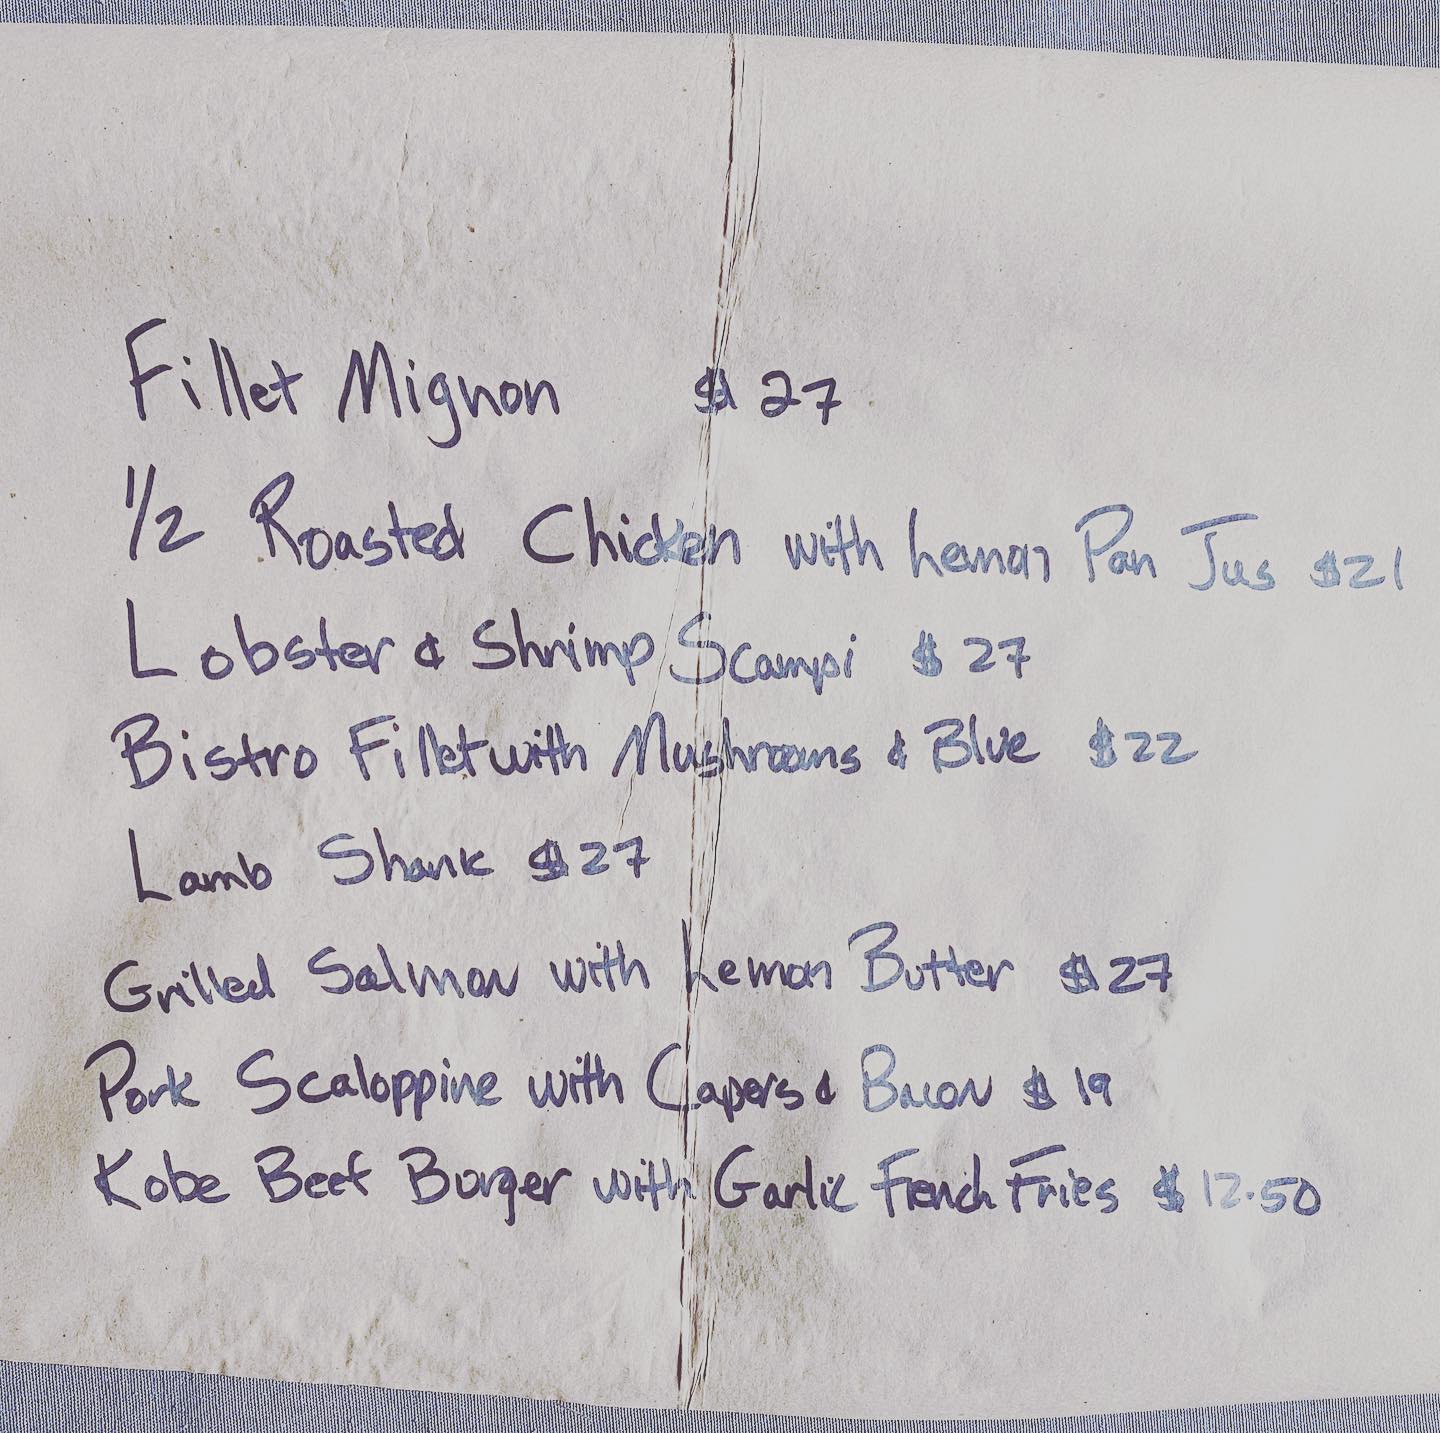 Fillet Mignon $27
1/2 Roasted Chicken with Lemon Pan Jus $21
Lobster & Shrimp Scampi $27
Bistro Fillet with Mushrooms & Blue $22
Lamb Shank $27
Grilled Salmon with Lemon Butter $27
Pork Scaloppine with Capers & Bacon $19
Kobe Beef Burger with Garlic French Fries $12.50